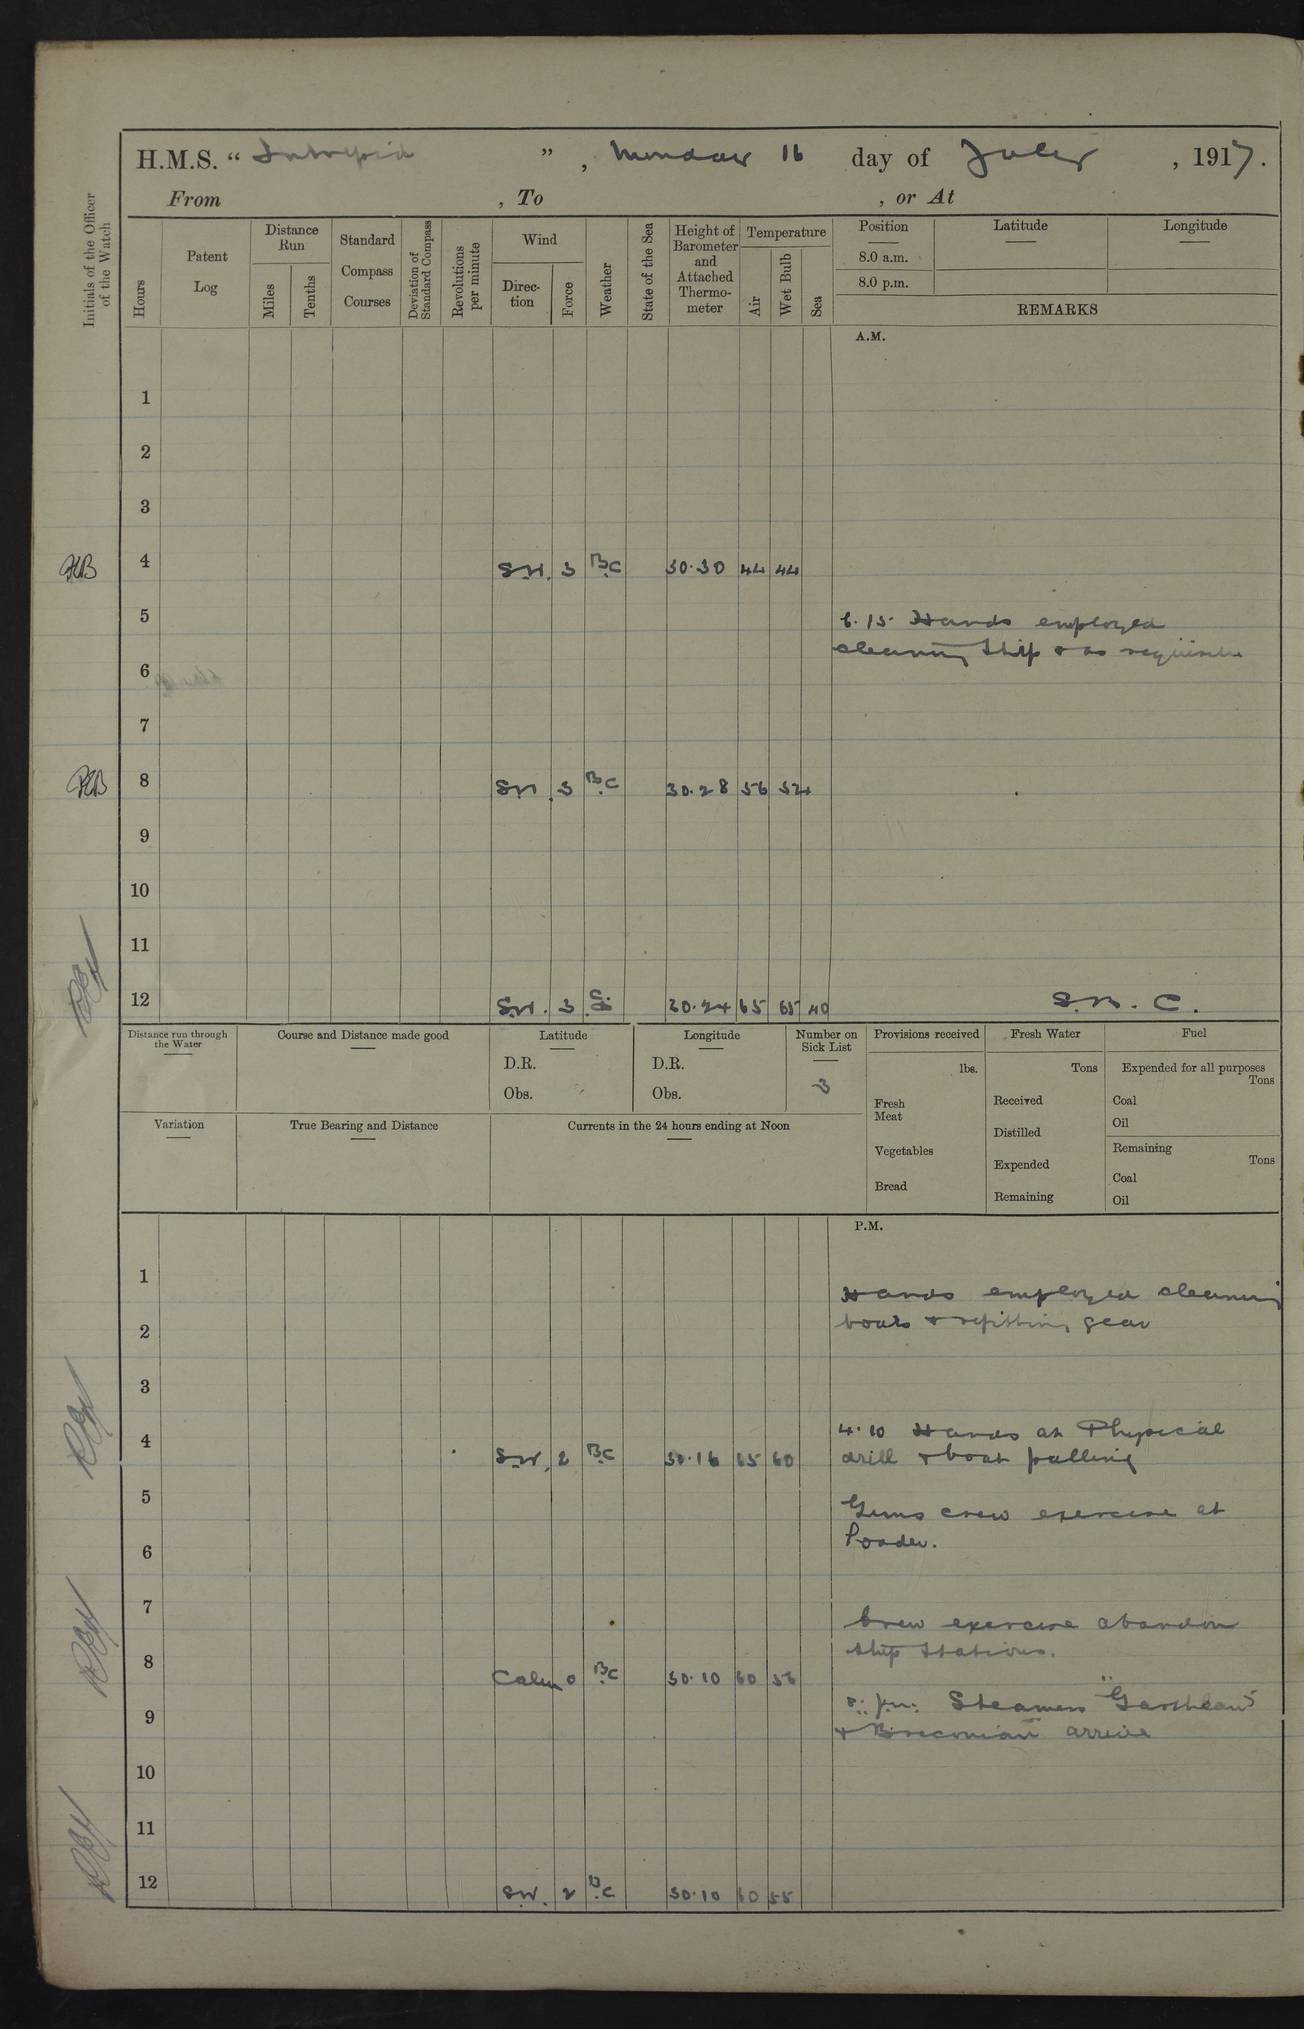 H.M.S. " Intrepid ", Monday 16 day of July, 1917.
From , To , or At
Initials of the Officer of the Watch
Hours
Patent Log
Distance Run
Miles
Tenths
Standard Compass Courses
Deviation of Standard Compass
Revolutions per minute
Wind
Direction
Force
Weather
State of the Sea
Height of Barometer and Attached Thermometer
Temperature
Air
Wet Bulb
Sea
Position
8.0 a.m.
8.0 p.m.
Latitude
Longitude
REMARKS
A.M.
1
2
3
4 S.W. 3 B.C 30.30 44 44
5 6.15 Hands employed
cleaning Ship & as requisite
6
7
8 SW 3 B.C 30.28 56 52
9
10
11
12 S.W. 3 30.24 65 65 40 S.B.C.
Distance run through the Water
Course and Distance made good
Latitude
D.R.
Obs.
Longitude
D.R.
Obs.
Number on Sick List
3
Provisions received
lbs.
Fresh Meat
Vegetables
Bread
Fresh Water
Tons
Received
Distilled
Expended
Remaining
Fuel
Expended for all purposes
Tons
Coal
Oil
Remaining
Tons
Coal
Oil
Variation
True Bearing and Distance
Currents in the 24 hours ending at Noon
P.M.
1 Hands employed cleaning
2 boats & refitting gear
3
4.10 Hands at Physical
4 S.W. 2 B.C 30.16 65 60 drill & boat pulling
5 Guns crew exercise at
6 loader.
7 Crew exercise abandon
ship stations.
8 Calm 0 B.C 30.10 60 56
p.m. Steamers "Garthclaus"
9 & Breconian arrive
10
11
12 S.W. 2 B.C 30.10 60 55